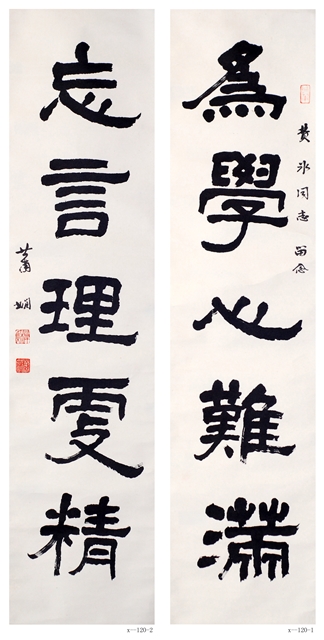 為學心難滿
冰同志 留念
忘言理更精
蕭嫻
x—120-2
x—120-1